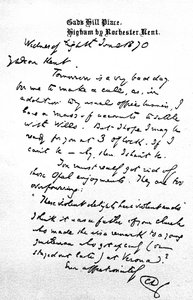 Gad's Hill Place,
Higham by Rochester, Kent.
Wednesday Eighth June 1870
My dear Kent
Tomorrow is a very bad day
for me to make a call, as, in
addition to my usual office business, I
have a mass of accounts to settle
with Wills. But I hope I may be
ready for you at 3 o'clock. If I
can't be - why, then I shan't be.
You must really get rid of
those Opal enjoyments. They are too
overpowering:
"These violent delights have violent ends"
I think it was a father of your church
who made the wise remark to a young
gentleman who got up early (or
stayed out late) at Verona?
Ever affectionately
CD